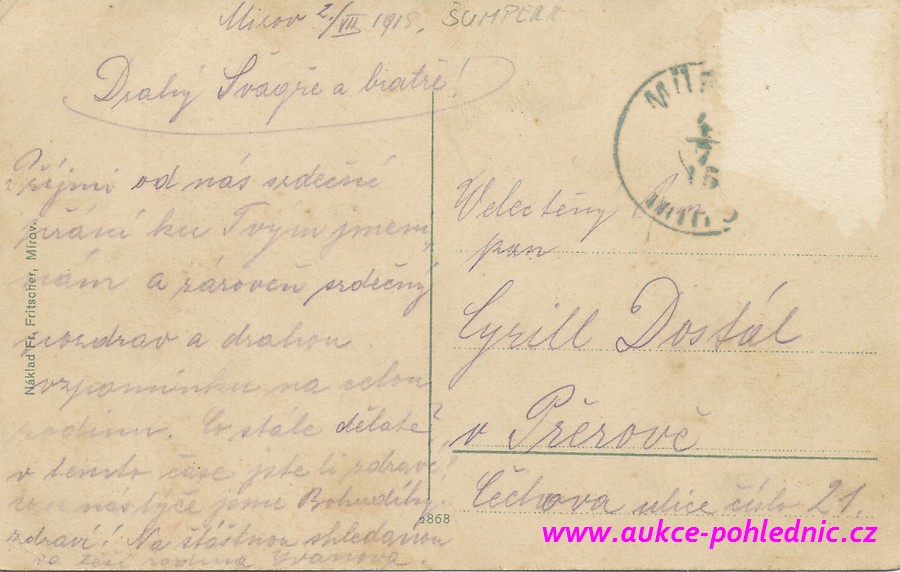 Mírov 2./VII 1915. ŠUMPERK
Drahý Švagře a bratře!
Přijmi od nás srdečné
přání ku Tvým jmeni„
nám a zároveň srdečný
pozdrav a drahou
vzpomínku na celou
rodinu. Co stále děláte?
v temto čase jste li zdrávi?
co se nás týče jsme Bohudíky
zdraví! Na šťastnou shledanou
se těší rodina
Náklad Fr. Fritscher, Mírov.
5868
15
Velectěný
pan
Cyrill Dostál
v Přerově
Čechova ulice číslo 21.
www.aukce-pohlednic.cz